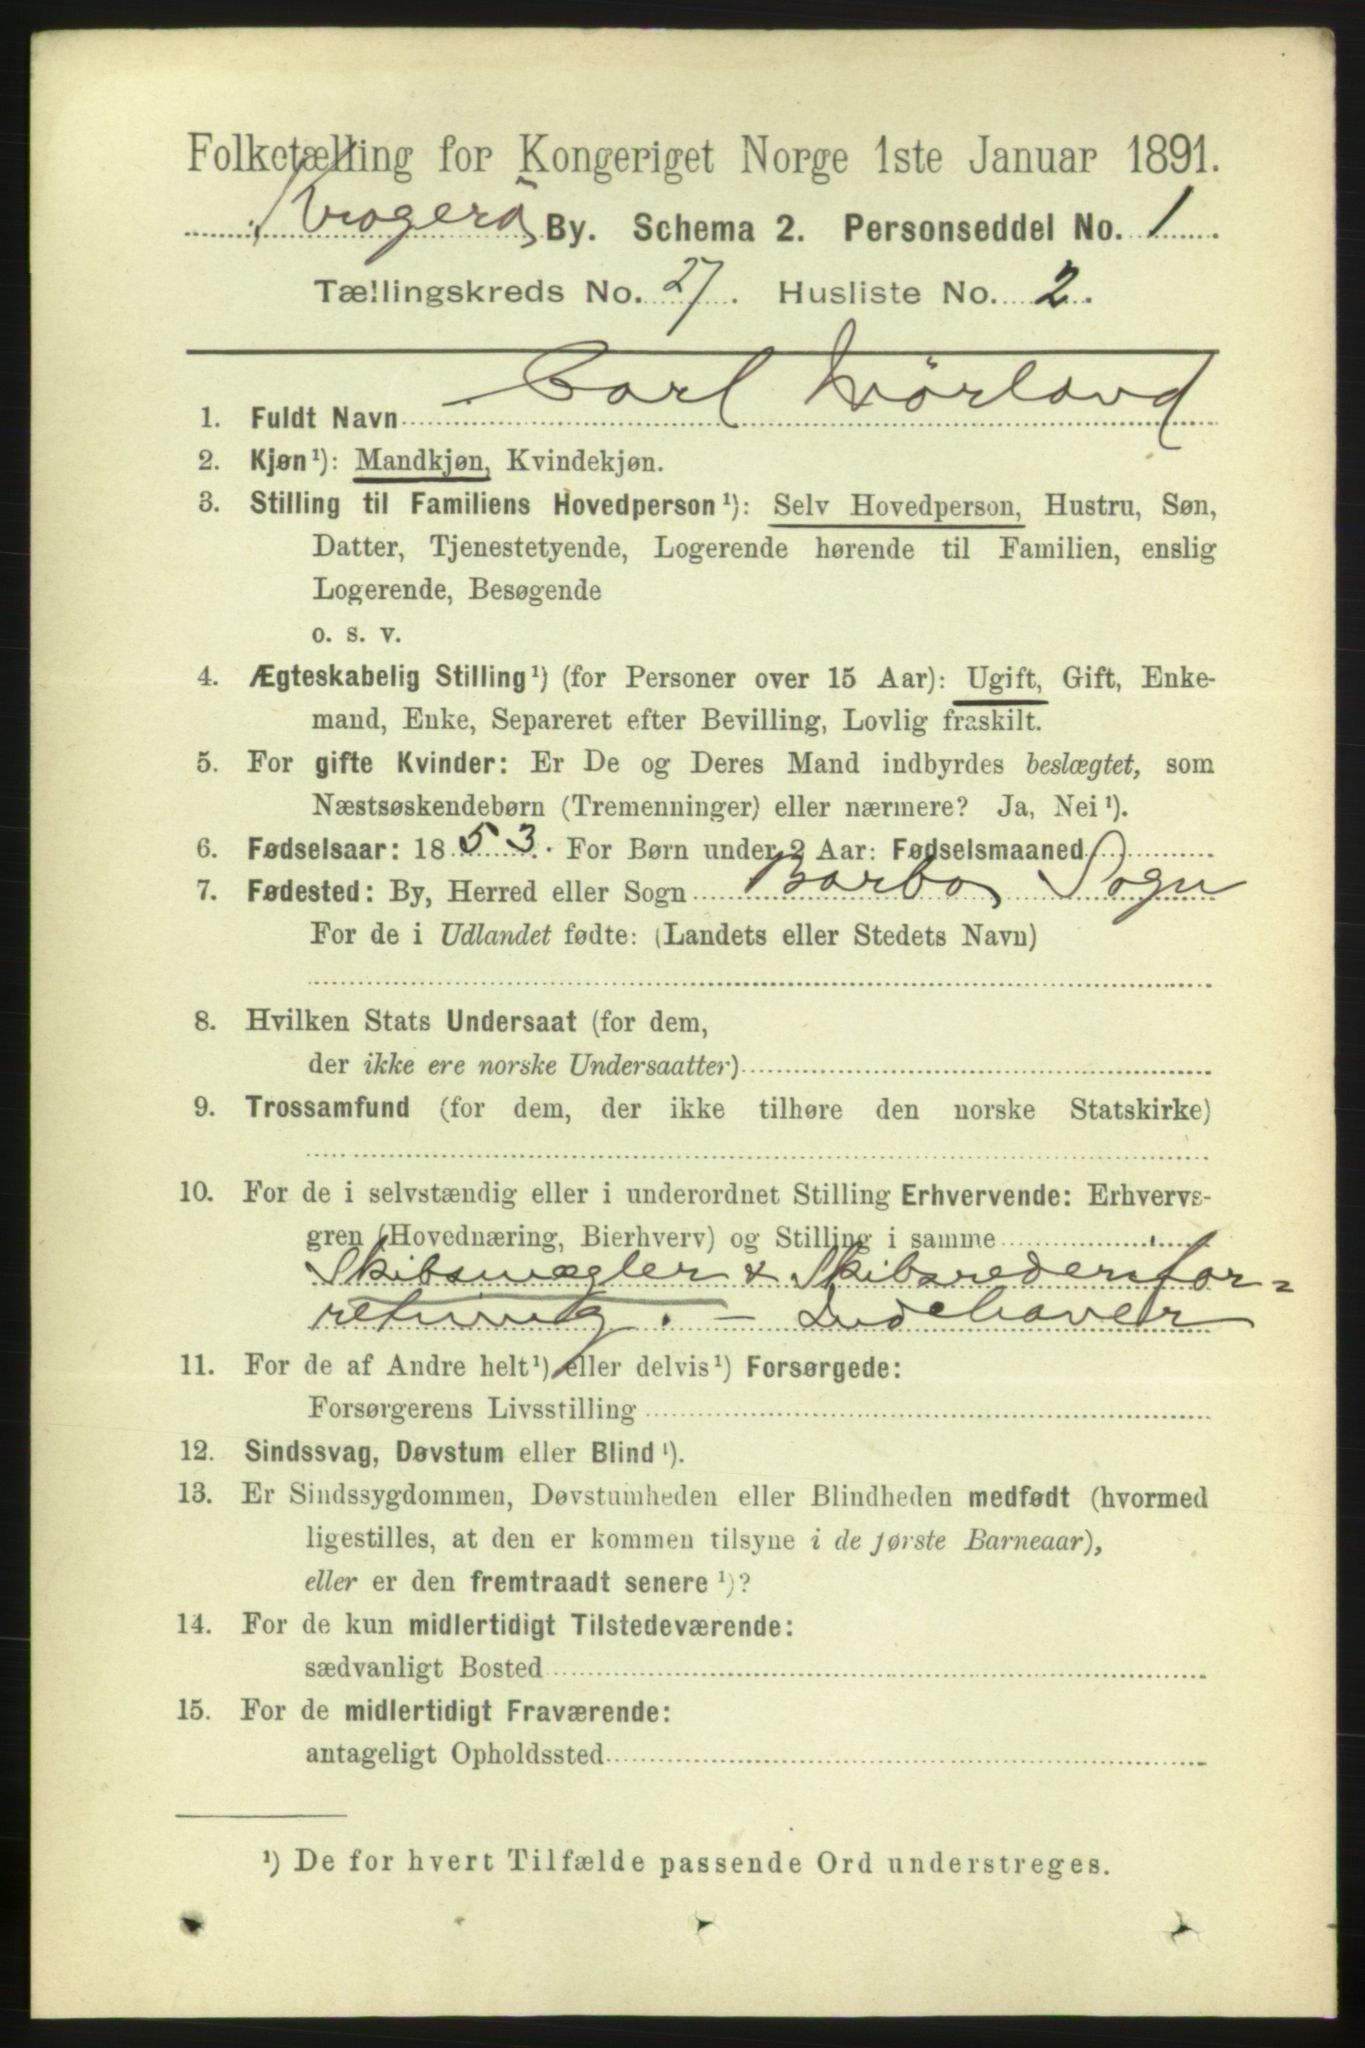 Folketælling for Kongeriget Norge 1ste Januar 1891.
Kragerö By. Schema 2. Personseddel No. 1.
Tællingskreds No. 27. Husliste No. 2.
1. Fuldt Navn Carl Mörland
2. Kjøn¹): Mandkjøn, Kvindekjøn.
3. Stilling til Familiens Hovedperson¹): Selv Hovedperson, Hustru, Søn,
Datter, Tjenestetyende, Logerende hørende til Familien, enslig
Logerende, Besøgende
o. s. v.
4. Ægteskabelig Stilling¹) (for Personer over 15 Aar): Ugift, Gift, Enke-
mand, Enke, Separeret efter Bevilling, Lovlig fraskilt.
5. For gifte Kvinder: Er De og Deres Mand indbyrdes beslægtet, som
Næstsøskendebørn (Tremenninger) eller nærmere? Ja, Nei¹).
6. Fødselsaar: 1853. For Børn under 2 Aar: Fødselsmaaned
7. Fødested: By, Herred eller Sogn Barbo Sogn
For de i Udlandet fødte: (Landets eller Stedets Navn)
8. Hvilken Stats Undersaat (for dem,
der ikke ere norske Undersaatter)
9. Trossamfund (for dem, der ikke tilhøre den norske Statskirke)
10. For de i selvstændig eller i underordnet Stilling Erhvervende: Erhvervs-
gren (Hovednæring, Bierhverv) og Stilling i samme
Skibsmægler & Skibsrederifor=
retning. - Indehaver
11. For de af Andre helt¹) eller delvis¹) Forsørgede:
Forsørgerens Livsstilling
12. Sindssvag, Døvstum eller Blind¹).
13. Er Sindssygdommen, Døvstumheden eller Blindheden medfødt (hvormed
ligestilles, at den er kommen tilsyne i de første Barneaar),
eller er den fremtraadt senere¹)?
14. For de kun midlertidigt Tilstedeværende:
sædvanligt Bosted
15. For de midlertidigt Fraværende:
antageligt Opholdssted
¹) De for hvert Tilfælde passende Ord understreges.